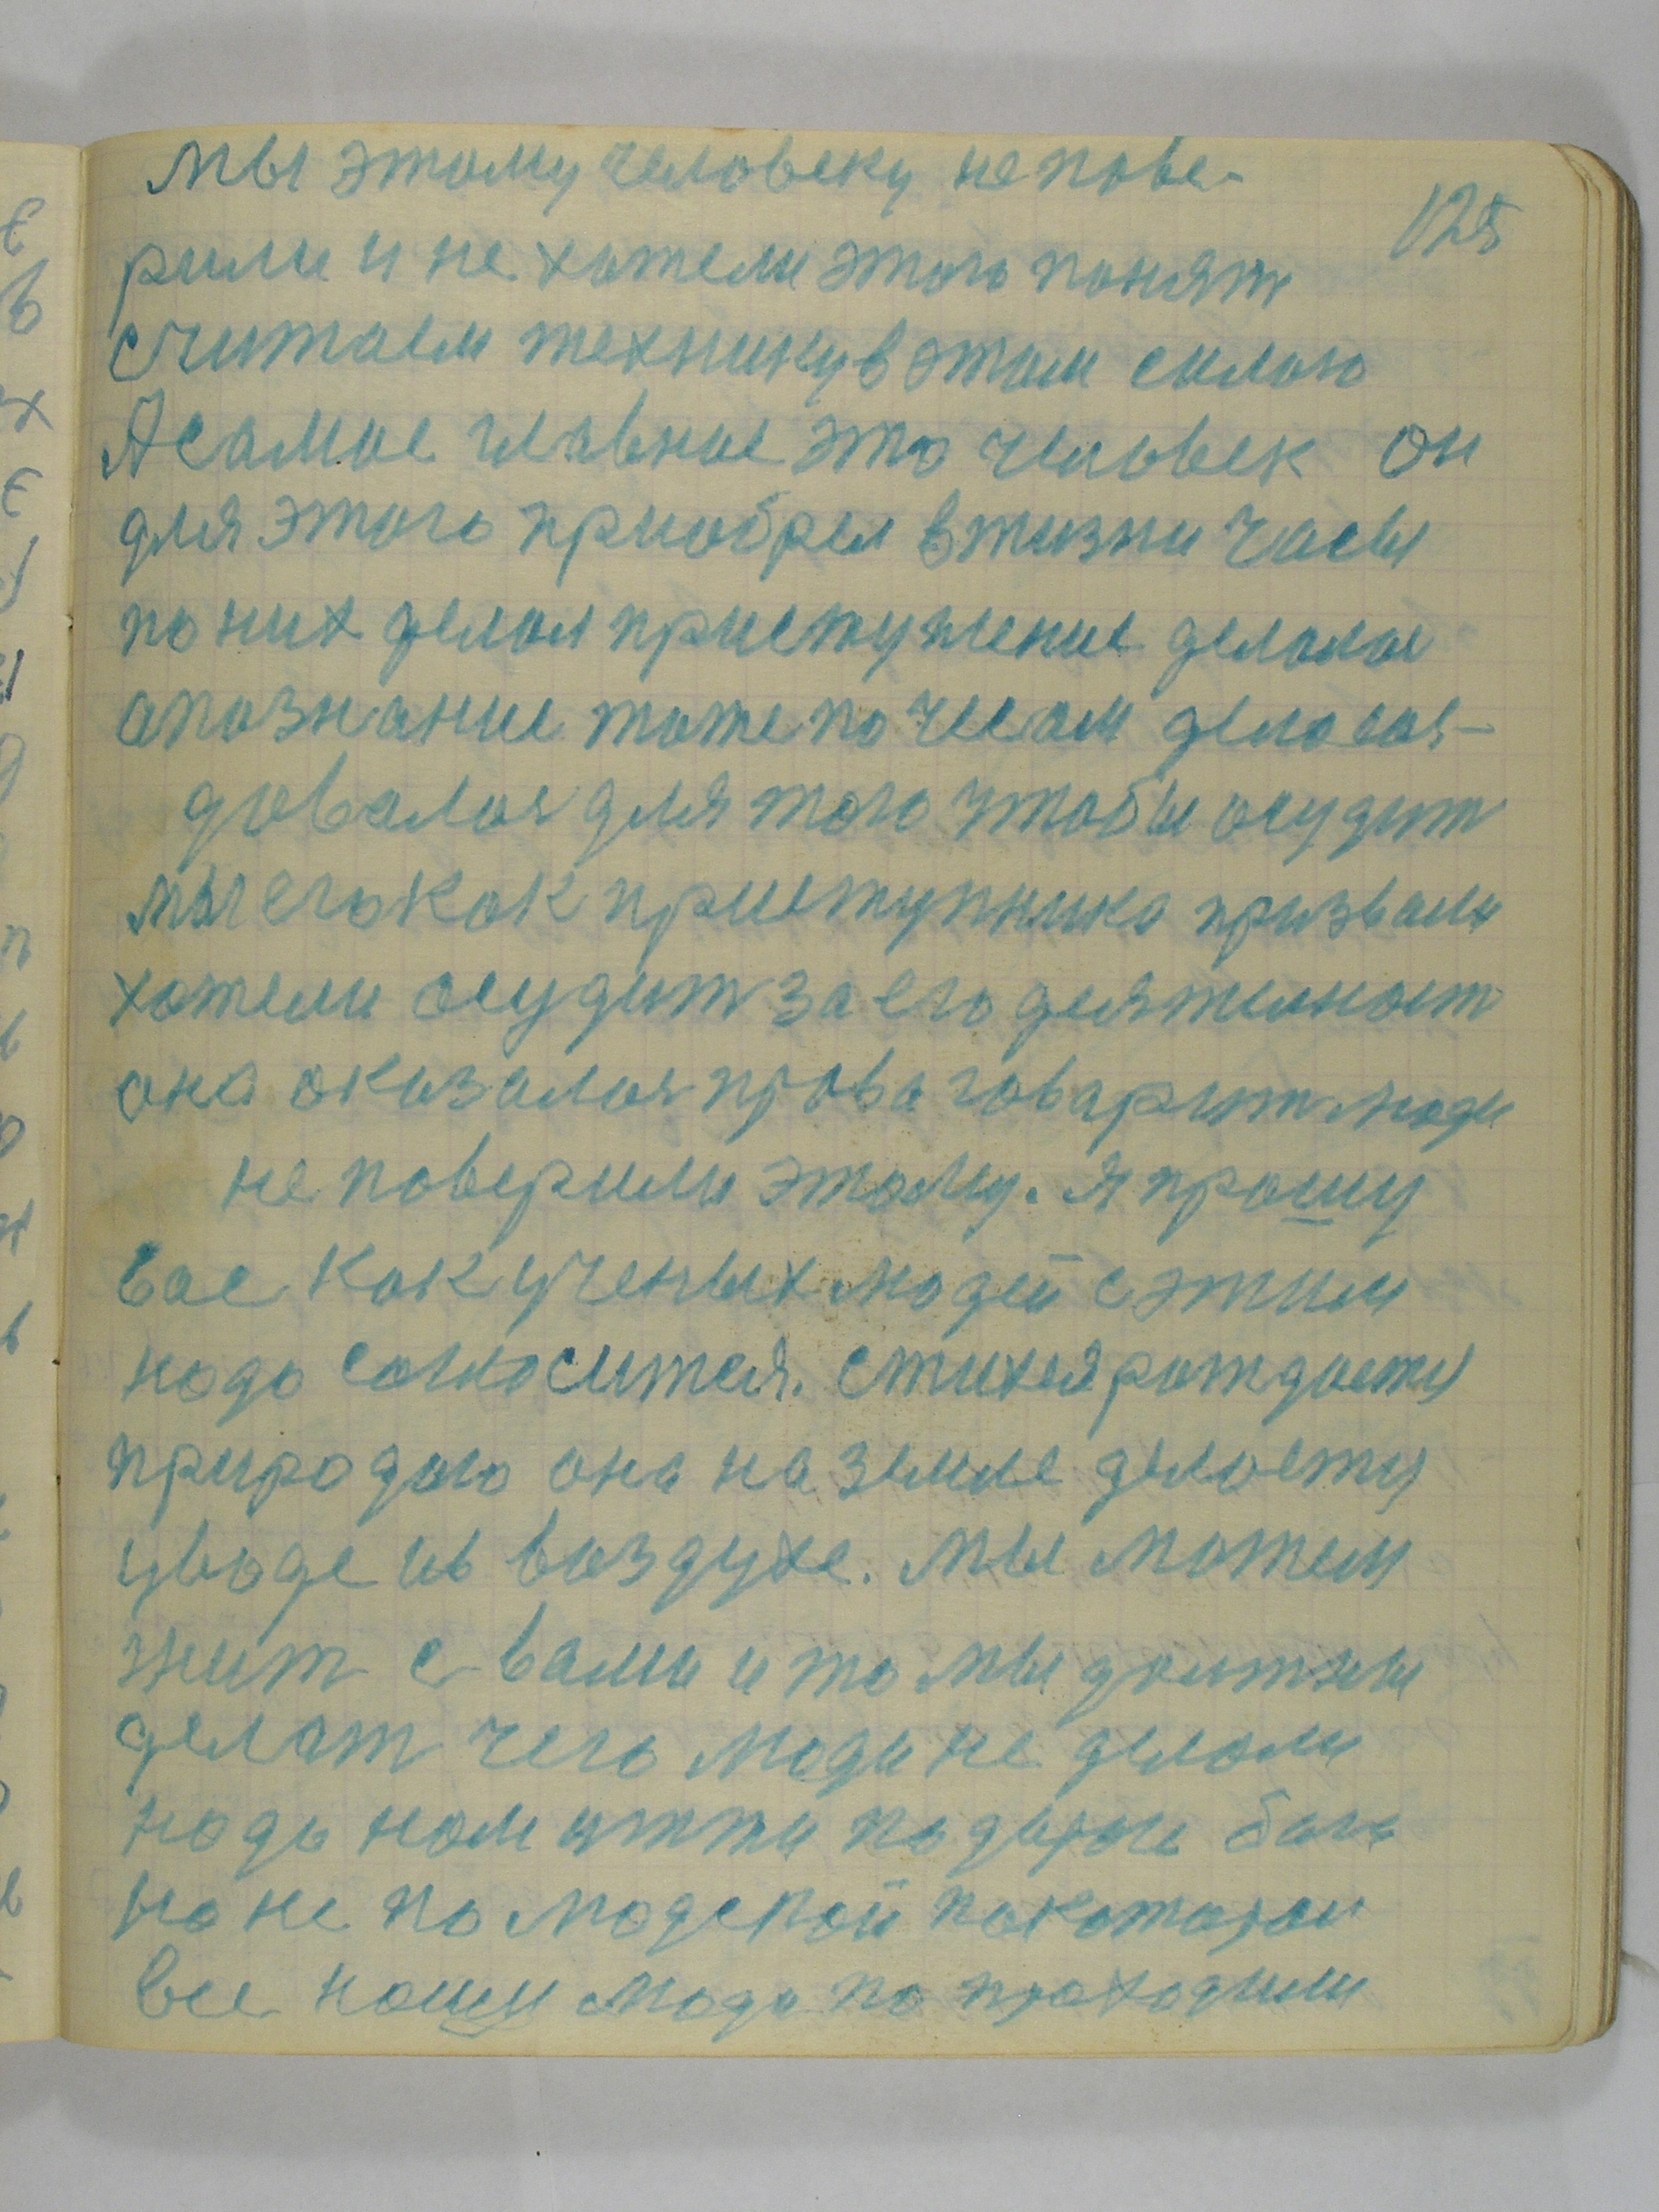 мы этому человеку не пове-
125
рили и не хотели этого понят
считаем технику в этом силою
А самое главное это человек он
для этого приобрел в жизни часы
по них делал приступление делалас
апознание тоже по чесам делалася-
довалося для того чтобы осудит
мы его как приступника призвали
хотели осудит за его деятелност
она оказалася права говарит люди
не поверили этому. я прошу
вас как ученых людей с этим
надо согласится. стихея рождаетя
природою она на земле делаетя
у воде и в воздухе. мы можем
жит с вами и то мы должны
делат чего люди не делали
надо нам итти по дороги бога
но не по людской по каторои
все наши люди по проходили